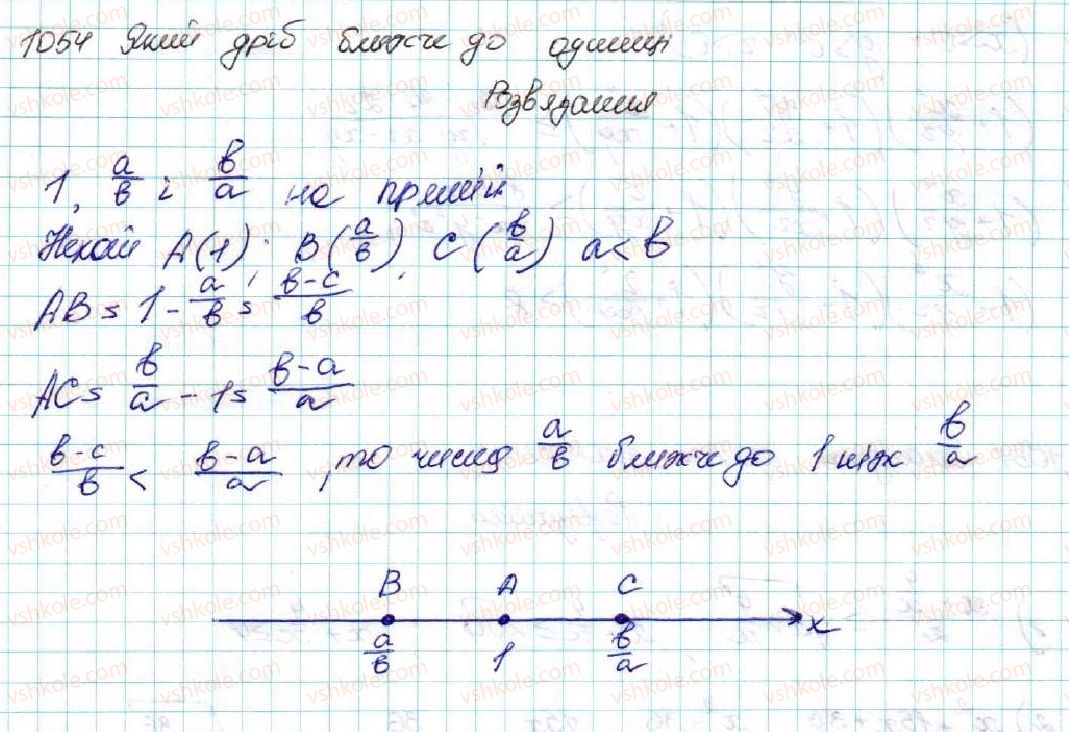 1054 Який дріб ближче до одиниці
Розвязання
1, a/в і в/a на прямій
Нехай A(1); B(a/в), C(в/a) a<в
AB = 1 - a/в = в-c/в
AC = в/a - 1 = в-a/a
в-c/в < в-a/a, то число a/в ближче до 1 ніж в/a
B A C
a/в 1 в/a x